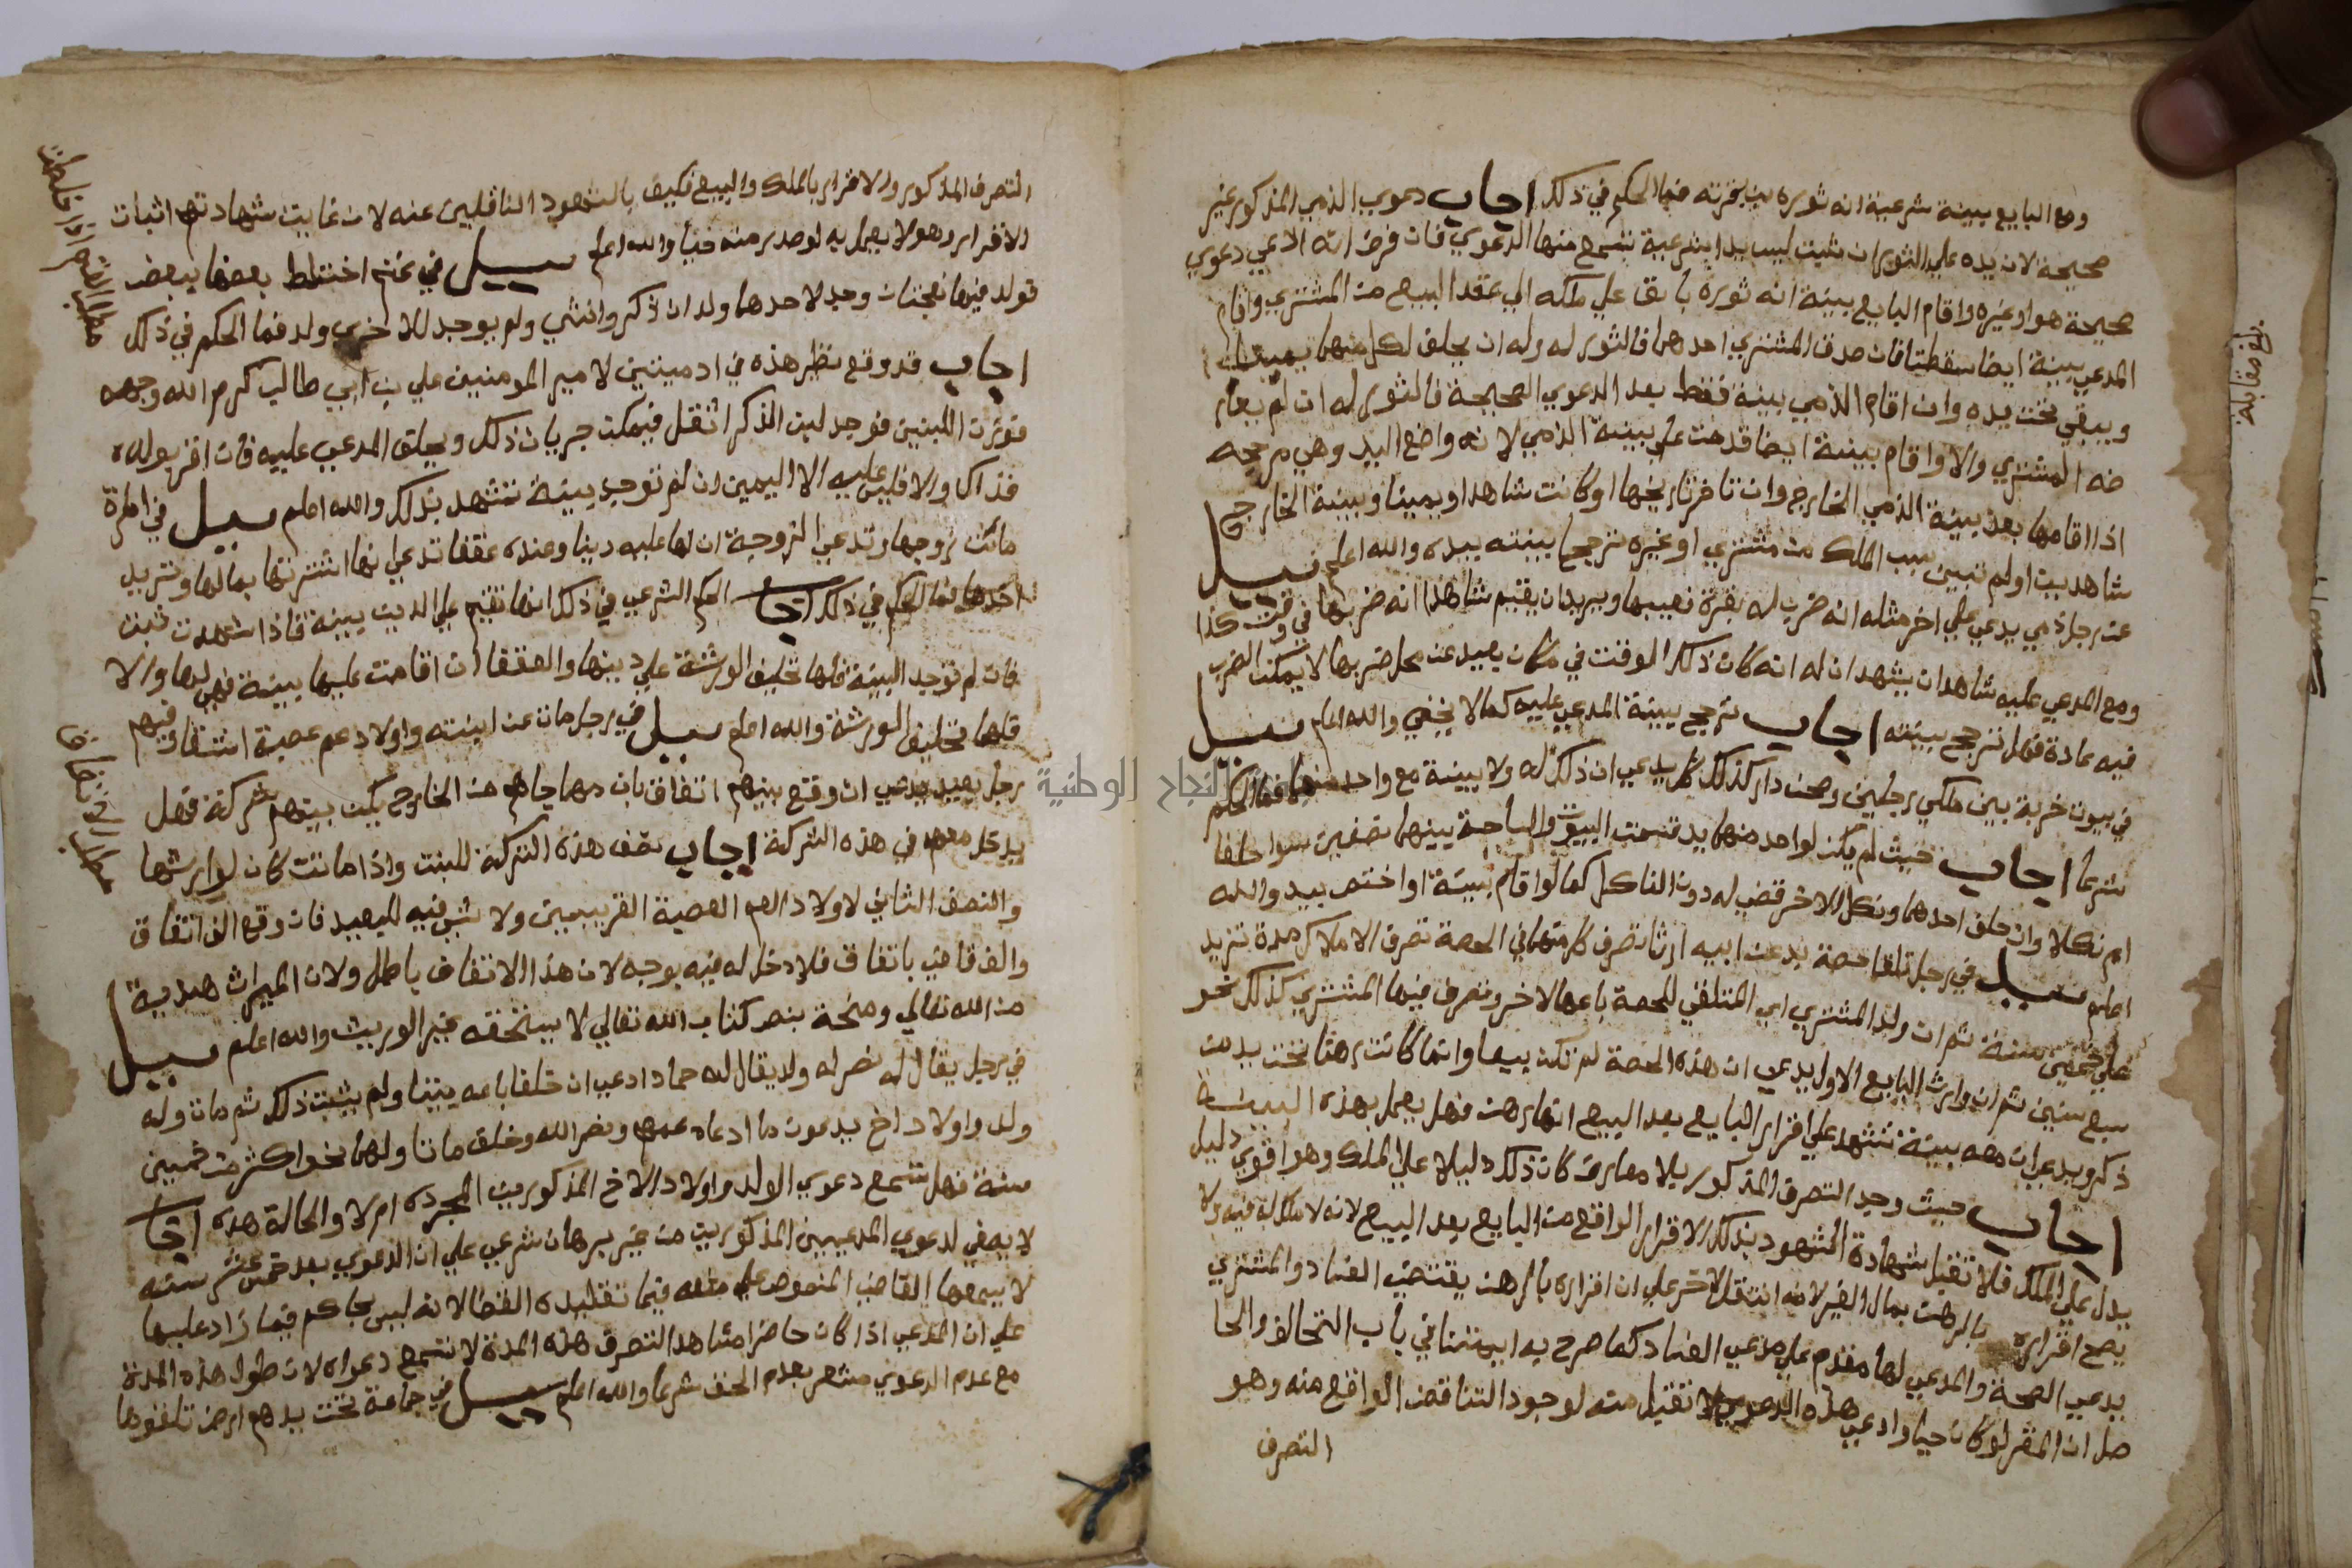 ومع البايع بينة شرعية انه ثوره بن بقرته فما الحكم في ذلك اجاب دعوي الذمي المذكور غير
صحيحة لان يده علي الثور ان ثبت ليس يدا شرعية تسمع منها الدعوي فان فرض انه ادعي دعوي
صحيحة هو او غيره واقام البايع بينة انه ثوره باق علي ملكه الي عقد البيع من المشتري واقام
المدعي بينة ايضا سقطتا فان صدق المشتري احدهما فالثور له وله ان يحلف لكل منهما يمينا
ويبقي تحت يده وان اقام الذمي بينة فقط بعد الدعوي الصحيحة فالثور له ان لم يعلم
منه المشتري والا واقام بينة ايضا قدمت علي بينة الذمي لانه واضع اليد وهي مرجحه
اذا اقامها بعد بينة الذمي الخارج وان تاخر تاريخها او كانت شاهدا ويمينا وبينة الخارج
شاهدين او لم تبين سبب الملك من مشتري او غيره ترجيحا لبينته بيده والله اعلم سيل
عن رجل ذمي يدعي علي اخر مثله انه ضرب له بقرة فعيبها ويريد ان يقيم شاهدا انه ضربها في وقت كذا
ومع المدعي عليه شاهدان يشهدان له انه كان ذلك الوقت في مكان بعيد عن محل ضربها لا يمكن الضرب
فيه عادة فهل ترجح بينته اجاب ترجح بينة المدعي عليه كما لا يخفي والله اعلم سيل
في بيوت خربة بين ملكي رجلين وصحن دار كذلك كل يدعي ان ذلك له ولا بينة مع واحد منهما فما الحكم
شرعا اجاب حيث لم يكن لواحد منهما يد قسمت البيوت والساحة بينهما نصفين سوا حلفا
ام نكلا وان حلف احدهما ونكل الاخر قضي له دون الناكل كما لو اقام بينة او اختص بيد والله
اعلم سيل في رجل تلقا حصة يد عن ابيه ارثا تصرف كل منهما في الحصة تصرف الاملاك مدة تزيد
علي خمسين سنة ثم ان ولد المشتري اي المتلقي للحصة باعها لاخر وتصرف فيها المشتري كذلك نحو
سبع سنين ثم ان وارث البايع الاول يدعي ان هذه الحصة لم تكن بيعا وانما كانت رهنا تحت يد من
ذكر ويدعي ان معه بينة تشهد علي اقرار البايع بعد البيع انها رهن فهل يعمل بهذه البينة
اجاب حيث وجد التصرف المذكور بلا معارض كان ذلك دليلا علي الملك وهو اقوي دليل
يدل علي الملك فلا تقبل شهادة الشهود بذلك الاقرار الواقع من البايع بعد البيع لانه لا ملك له فيه ولا
يصح اقراره بالرهن بمال الغير لانه انتقل لاخر علي ان اقراره بالرهن يقتضي الفساد والمشتري
يدعي الصحة والمدعي لها مقدم علي مدعي الفساد كما صرح به ايمتنا في باب التحالف والحا
صل ان المقر لو كان حيا وادعي هذه الدعوي لا تقبل منه لوجود التناقض الواقع منه وهو
التصرف
بلغ مقابلة
التصرف المذكور والاقرار بالملك والبيع فكيف بالشهود الناقلين عنه لان غايت شهادتهم اثبات
الاقرار وهو لا يعمل به لو صدر منه حيا والله اعلم سيل في غنم اختلط بعضها ببعض
فولد فيها نعجتان وجد لاحدهما ولدان ذكر وانثي ولم يوجد للاخري ولد فما الحكم في ذلك
اجاب قد وقع نظير هذه في ادميتين لامير المومنين علي بن ابي طالب كرم الله وجهه
فوزن اللبنين فوجد لبن الذكر اثقل فيمكن جريان ذلك ويحلف المدعي عليه فان اقر بولد
فذاك والا فليس عليه الا اليمين ان لم توجد بينة تشهد بذلك والله اعلم سيل في امراة
مات زوجها وتدعي الزوجة ان لها عليه دينا وعنده عفقا تدعي انها اشترتها بمالها وتريد
اخدها فما الحكم في ذلك اجاب الحكم الشرعي في ذلك انها تقيم علي الدين بينة فاذا شهدت ثبت
فان لم توجد البينة فلها تحليف الورثة علي دينها والعفقا ان اقامت عليها بينة فهي لها والا
فلها تحليف الورثة والله اعلم سيل في رجل مات عن ابنته واولاد عم عصبة اشقاق فيهم
رجل بعيد يدعي ان وقع بينهم اتفاق بان مهما جاهم من الخارج يكن بينهم شركة فهل
يدخل معهم في هذه الشركة اجاب نصف هذه التركة للبنت واذا ماتت كان لوارثها
والنصف الثاني لاولاد العم العصبة القريبين ولا شي فيه للبعيد فان وقع الف اتفاق
والف قاض باتفاق فلا دخل له فيه بوجه لان هذا الاتفاق باطل ولان الميراث هدية
من الله تعالي ومنحة بنص كتاب الله تعالي لا يستحقه غير الوريث والله اعلم سيل
في رجل يقال له نصر له ولد يقال له حماد ادعي ان خلفا باعه بيتا ولم يثبت ذلك ثم مات وله
ولد واولاد اخ يدعون ما ادعاه عمهم ونصر الله وخلف ماتا ولهما نحو اكثر من خمسين
سنة فهل تسمع دعوي الولد واولاد الاخ المذكورين المجرده ام لا والحالة هذه اجاب
لا يصغي لدعوي المدعيين المذكورين من غير برهان شرعي علي ان الدعوي بعد خمس عشر سنه
لا يسمعها القاضي المنصوص علي منعه فيما تقليده القضا لانه ليس بحاكم فيما زاد عليها
علي ان المدعي اذا كان حاضرا مشاهدا التصرف هذه المدة لا تسمع دعواه لان طول هذه المدة
مع عدم الدعوي مشعر بعدم الحق شرعا والله اعلم سيل في جماعة تحت يدهم ارض تلقوها
مطلب الغنم اذا اختلطت